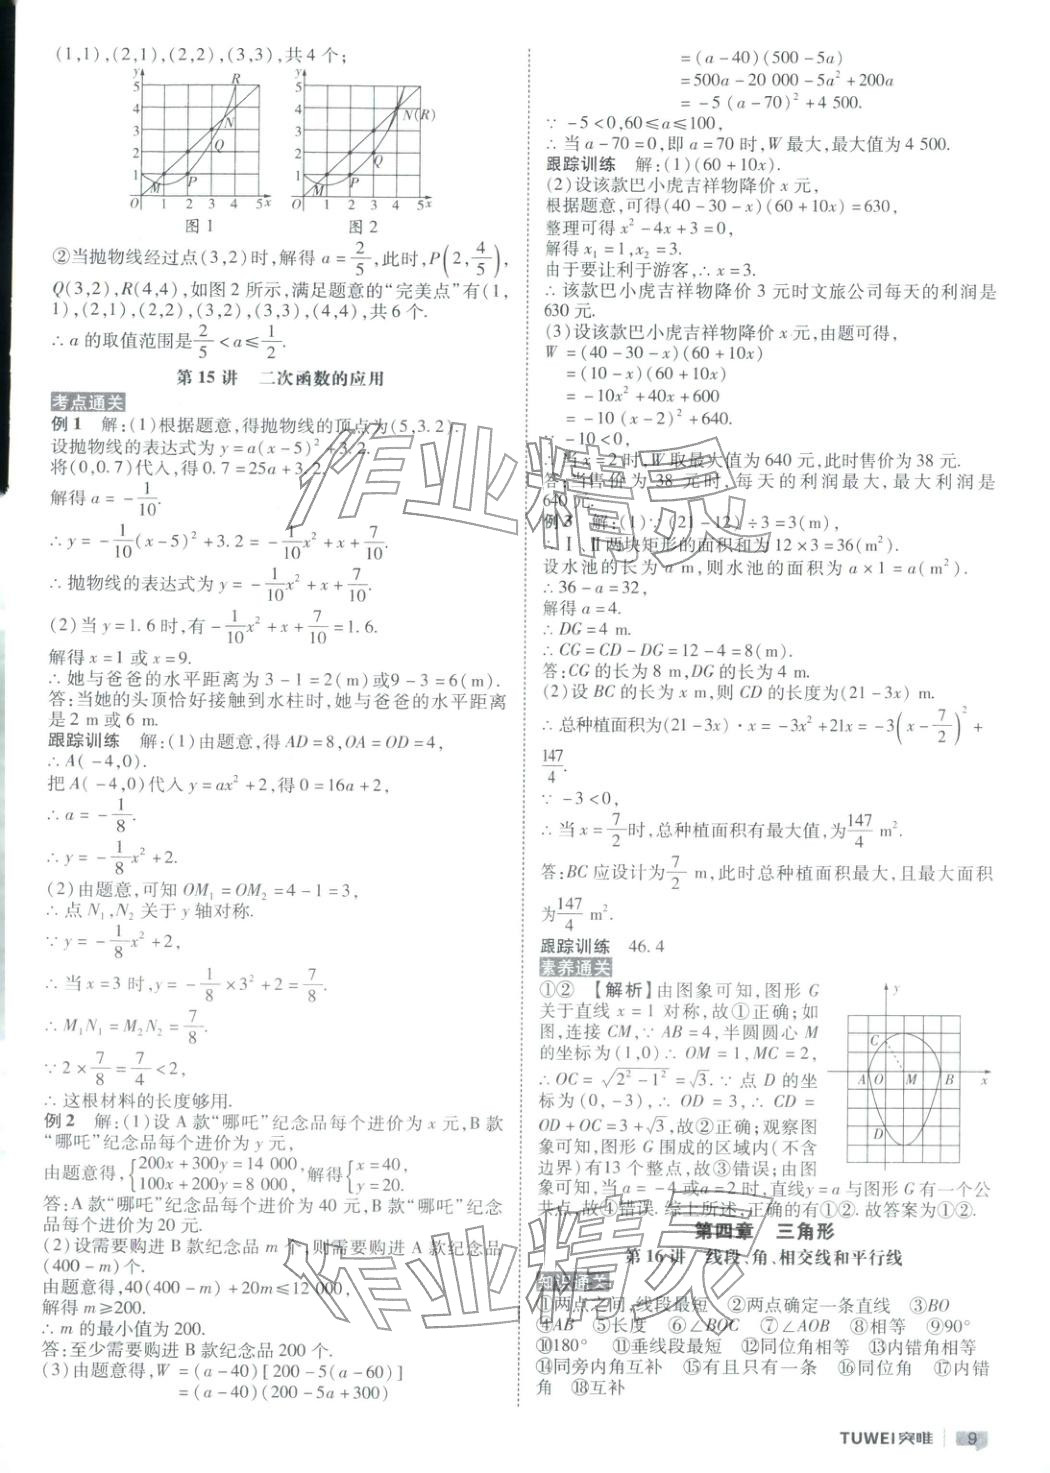 (1,1),(2,1),(2,2),(3,3),共4个;
图1 图2
②当抛物线经过点(3,2)时,解得 a=2/5,此时,P(2,4/5),
Q(3,2),R(4,4),如图2所示,满足题意的“完美点”有(1,
1),(2,1),(2,2),(3,2),(3,3),(4,4),共6个.
∴a的取值范围是2/5<a≤1/2.
第15讲 二次函数的应用
考点通关
例1 解:(1)根据题意,得抛物线的顶点为(5,3.2).
设抛物线的表达式为y=a(x-5)²+3.2.
将(0,0.7)代入,得0.7=25a+3.2,
解得a=-1/10.
∴y=-1/10(x-5)²+3.2=-1/10x²+x+7/10.
∴抛物线的表达式为y=-1/10x²+x+7/10.
(2)当y=1.6时,有-1/10x²+x+7/10=1.6.
解得x=1或x=9.
∴她与爸爸的水平距离为3-1=2(m)或9-3=6(m).
答:当她的头顶恰好接触到水柱时,她与爸爸的水平距离
是2 m或6 m.
跟踪训练 解:(1)由题意,得AD=8,OA=OD=4,
∴A(-4,0).
把A(-4,0)代入y=ax²+2,得0=16a+2,
∴a=-1/8.
∴y=-1/8x²+2.
(2)由题意,可知OM₁=OM₂=4-1=3,
∴点N₁,N₂关于y轴对称.
∵y=-1/8x²+2,
∴当x=3时,y=-1/8×3²+2=7/8.
∴M₁N₁=M₂N₂=7/8.
∵2×7/8=7/4<2,
∴这根材料的长度够用.
例2 解:(1)设A款“哪吒”纪念品每个进价为x元,B款
“哪吒”纪念品每个进价为y元,
由题意得,{200x+300y=14 000, 100x+200y=8 000,解得{x=40, y=20.
答:A款“哪吒”纪念品每个进价为40元,B款“哪吒”纪念
品每个进价为20元.
(2)设需要购进B款纪念品m个,则需要购进A款纪念品
(400-m)个.
由题意得,40(400-m)+20m≤12 000,
解得m≥200.
∴m的最小值为200.
答:至少需要购进B款纪念品200个.
(3)由题意得,W=(a-40)[200-5(a-60)]
=(a-40)(200-5a+300)
=(a-40)(500-5a)
=500a-20 000-5a²+200a
=-5(a-70)²+4 500.
∵-5<0,60≤a≤100,
∴当a-70=0,即a=70时,W最大,最大值为4 500.
跟踪训练 解:(1)(60+10x).
(2)设该款巴小虎吉祥物降价x元,
根据题意,可得(40-30-x)(60+10x)=630,
整理可得x²-4x+3=0,
解得x₁=1,x₂=3.
由于要让利于游客,∴x=3.
∴该款巴小虎吉祥物降价3元时文旅公司每天的利润是
630元.
(3)设该款巴小虎吉祥物降价x元,由题可得,
W=(40-30-x)(60+10x)
=(10-x)(60+10x)
=-10x²+40x+600
=-10(x-2)²+640.
∵-10<0,
∴当x=2时,W取最大值为640元,此时售价为38元.
答:当售价为38元时,每天的利润最大,最大利润是
640元.
例3 解:(1)∵(21-12)÷3=3(m),
∴Ⅰ、Ⅱ两块矩形的面积和为12×3=36(m²).
设水池的长为a m,则水池的面积为a×1=a(m²).
∴36-a=32,
解得a=4.
∴DG=4 m.
∴CG=CD-DG=12-4=8(m).
答:CG的长为8 m,DG的长为4 m.
(2)设BC的长为x m,则CD的长度为(21-3x) m.
∴总种植面积为(21-3x)·x=-3x²+21x=-3(x-7/2)²+
147/4.
∵-3<0,
∴当x=7/2时,总种植面积有最大值,为147/4 m².
答:BC应设计为7/2 m,此时总种植面积最大,且最大面积
为147/4 m².
跟踪训练 46.4
素养通关
①② 【解析】由图象可知,图形G
关于直线x=1对称,故①正确;如
图,连接CM,∵AB=4,半圆圆心M
的坐标为(1,0)∴OM=1,MC=2,
∴OC=√2²-1²=√3.∵点D的坐
标为(0,-3),∴OD=3,∴CD=
OD+OC=3+√3,故②正确;观察图
象可知,图形G围成的区域内(不含
边界)有13个整点,故③错误;由图
象可知,当a=-4或a=2时,直线y=a与图形G有一个公
共点,故④错误.综上所述,正确的有①②.故答案为①②.
第四章 三角形
第16讲 线段、角、相交线和平行线
知识通关
①两点之间,线段最短 ②两点确定一条直线 ③BO
④AB ⑤长度 ⑥∠BOC ⑦∠AOB ⑧相等 ⑨90°
⑩180° ⑪垂线段最短 ⑫同位角相等 ⑬内错角相等
⑭同旁内角互补 ⑮有且只有一条 ⑯同位角 ⑰内错
角 ⑱互补
TUWEI突唯 9
作业精灵
作业精灵